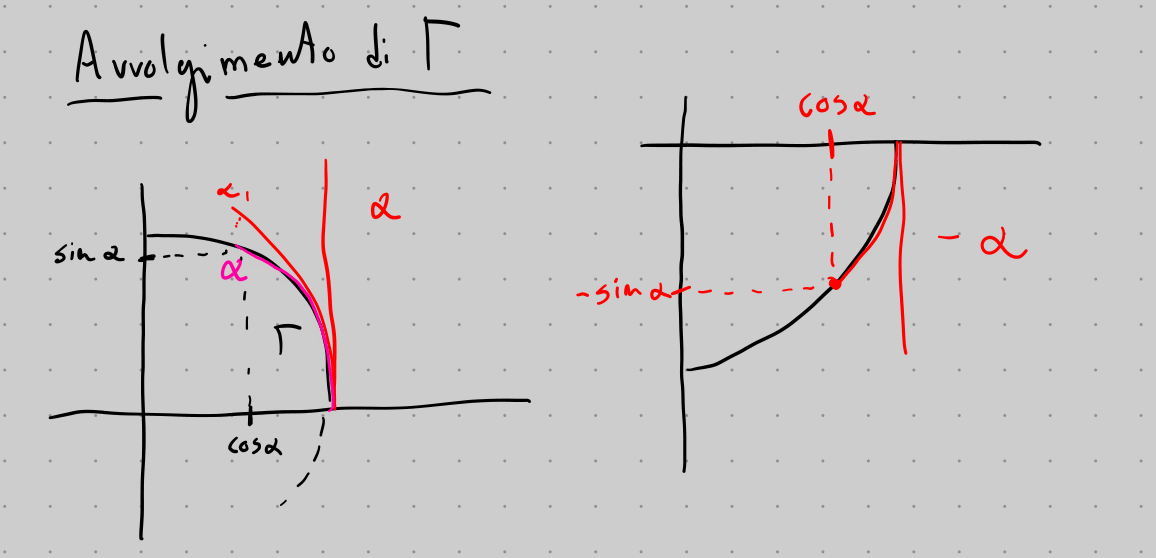 Avvolgimento di Γ
α₁
α
sin α
α
Γ
cos α
cos α
- α
-sin α